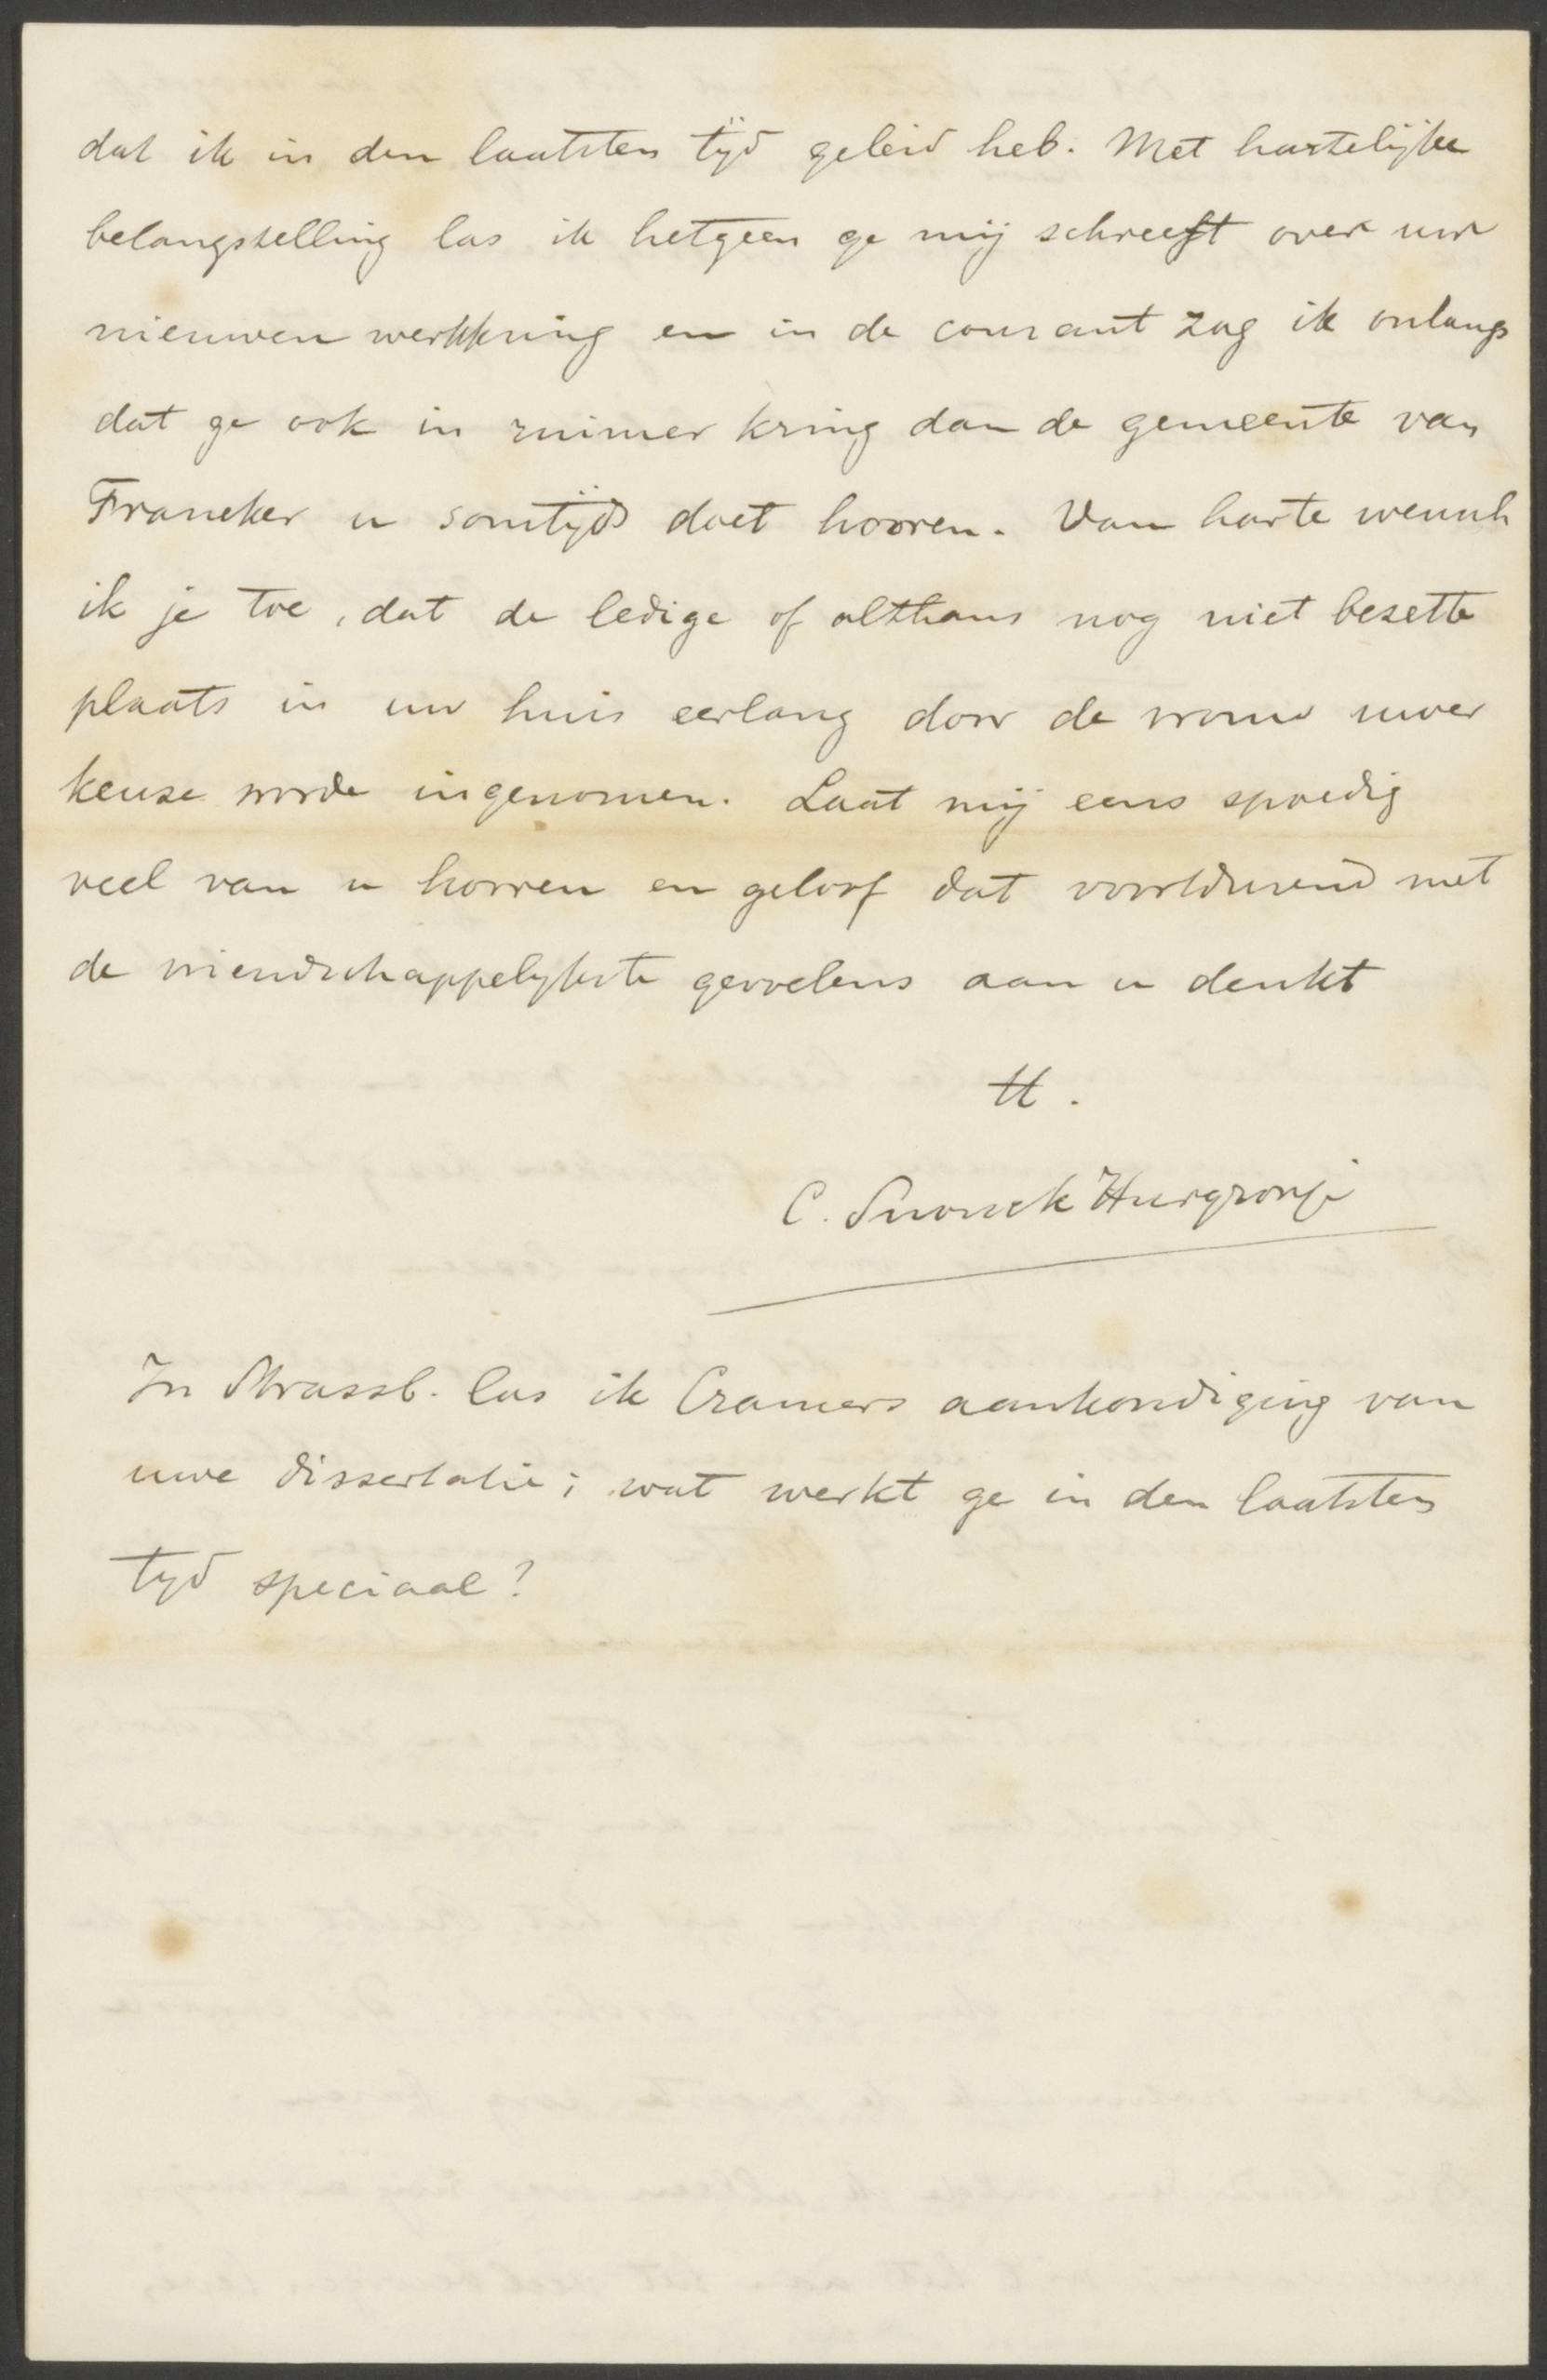 dat ik in den laatsten tijd geleid heb. Met hartelijke
belangstelling las ik hetgeen ge mij schreeft over uw
nieuwen werkkring en in de courant zag ik onlangs
dat ge ook in ruimer kring dan de gemeente van
Franeker u somtijds doet hooren. Van harte wensch
ik je toe, dat de ledige of althans nog niet bezette
plaats in uw huis eerlang door de vrouw uwer
keuze worde ingenomen. Laat mij eens spoedig
veel van u hooren en geloof dat voortdurend met
de vriendschappelijkste gevoelens aan u denkt
tt.
C. Snouck Hurgronje
In Strassb. las ik Cramers aankondiging van
uwe dissertatie; wat werkt ge in den laatsten
tijd speciaal?